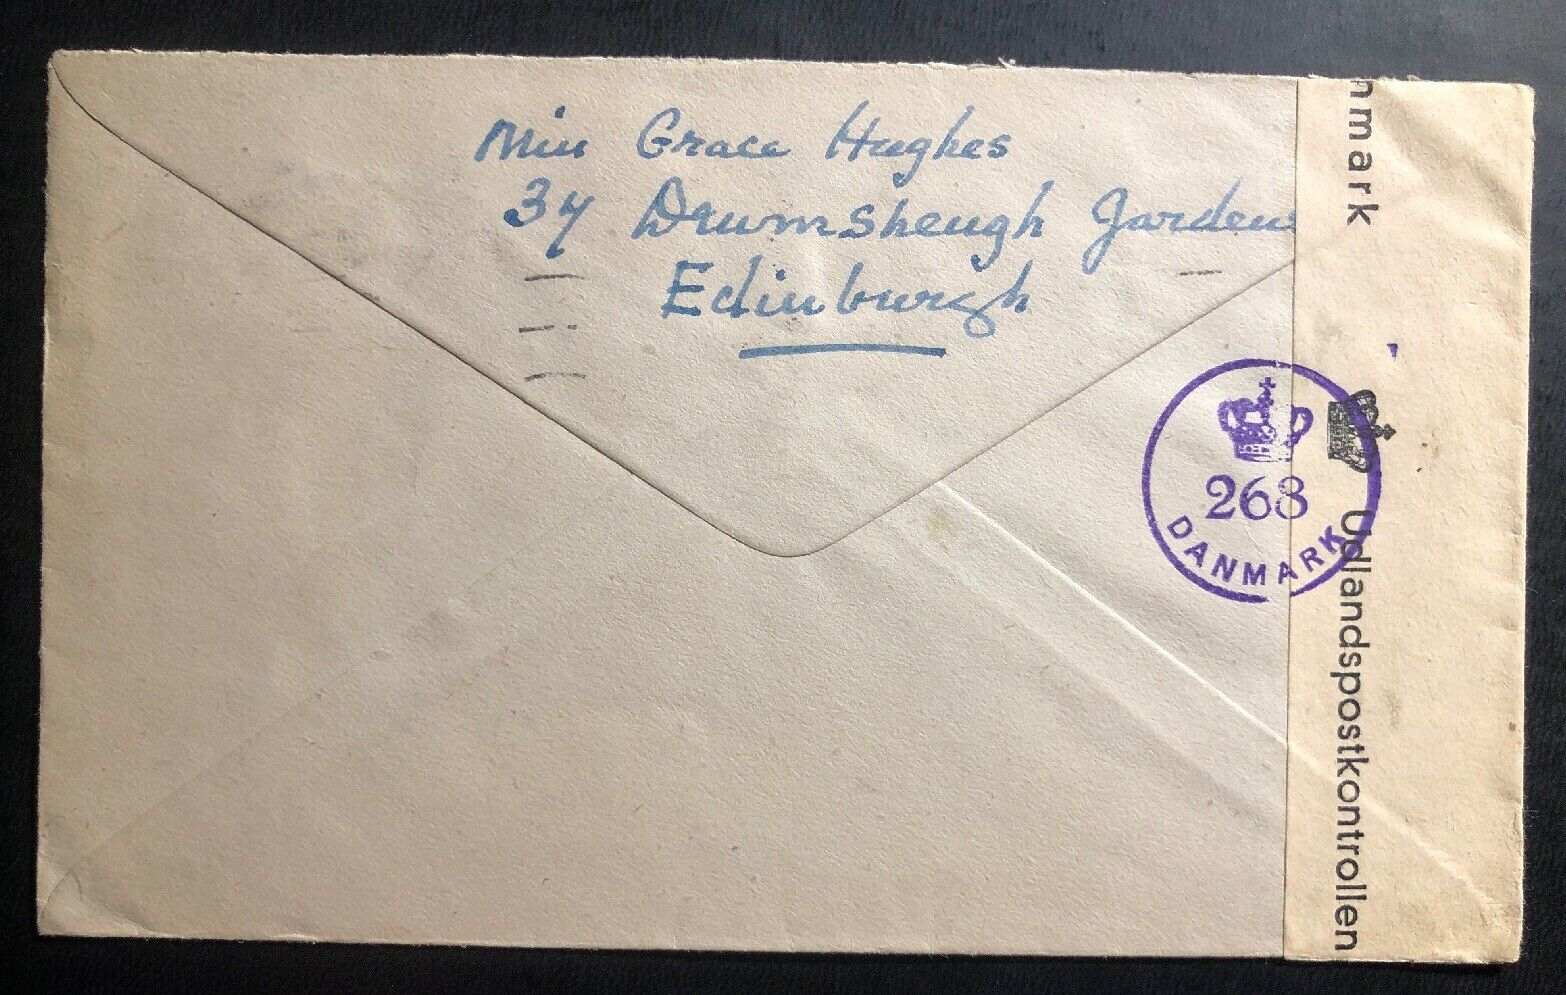 Miss Grace Hughes
37 Drumsheugh Gardens
Edinburgh
268
DANMARK
nmark
Udlandspostkontrollen